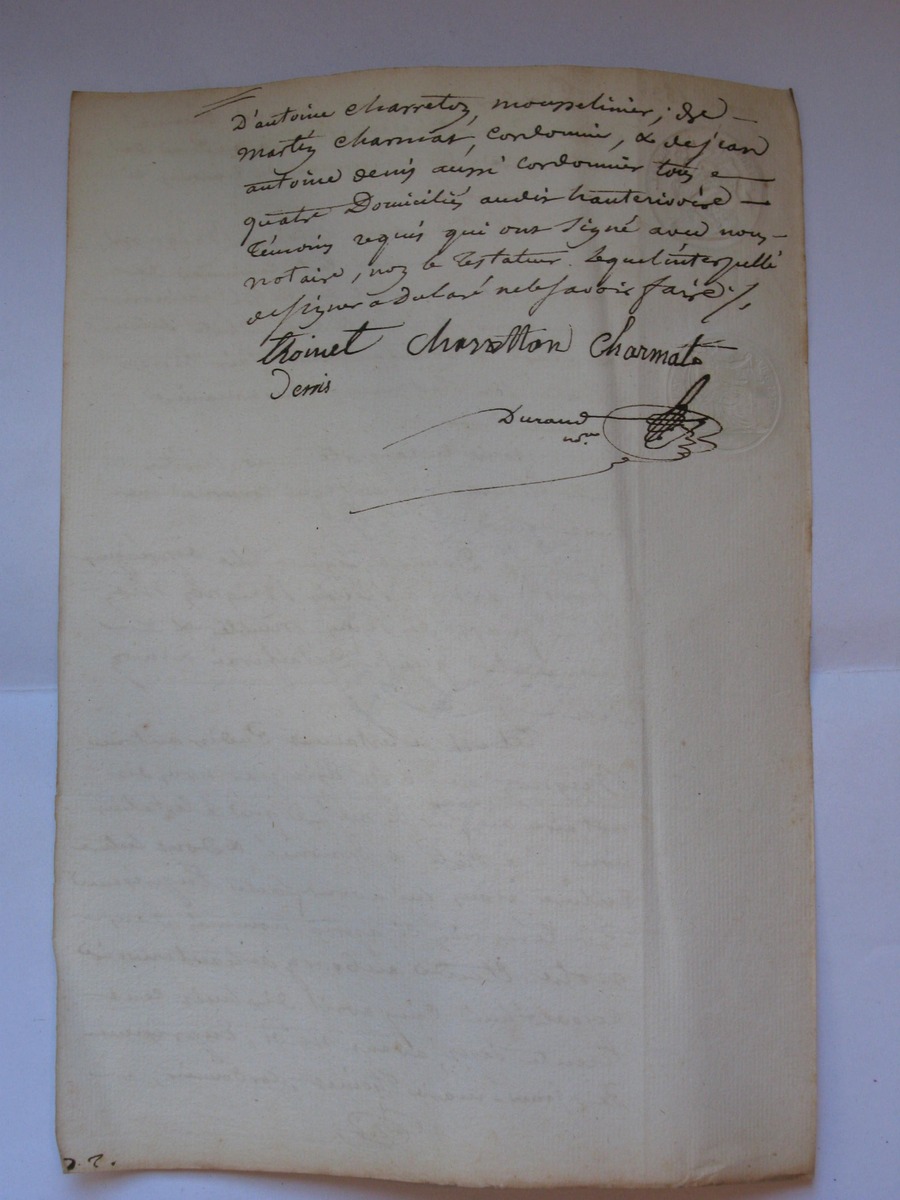 D'antoine charreton, mousselinier; de
martin charmat, cordonnier, & de jean
antoine denis aussi cordonnier tous
quatre Domiciliés audit hauterivoire
témoins requis qui ont signé avec nous
notaire, non le testateur lequel interpellé
de signer a déclaré ne le savoir faire ./.
thoinet charetton Charmat
Denis
Durand
nre